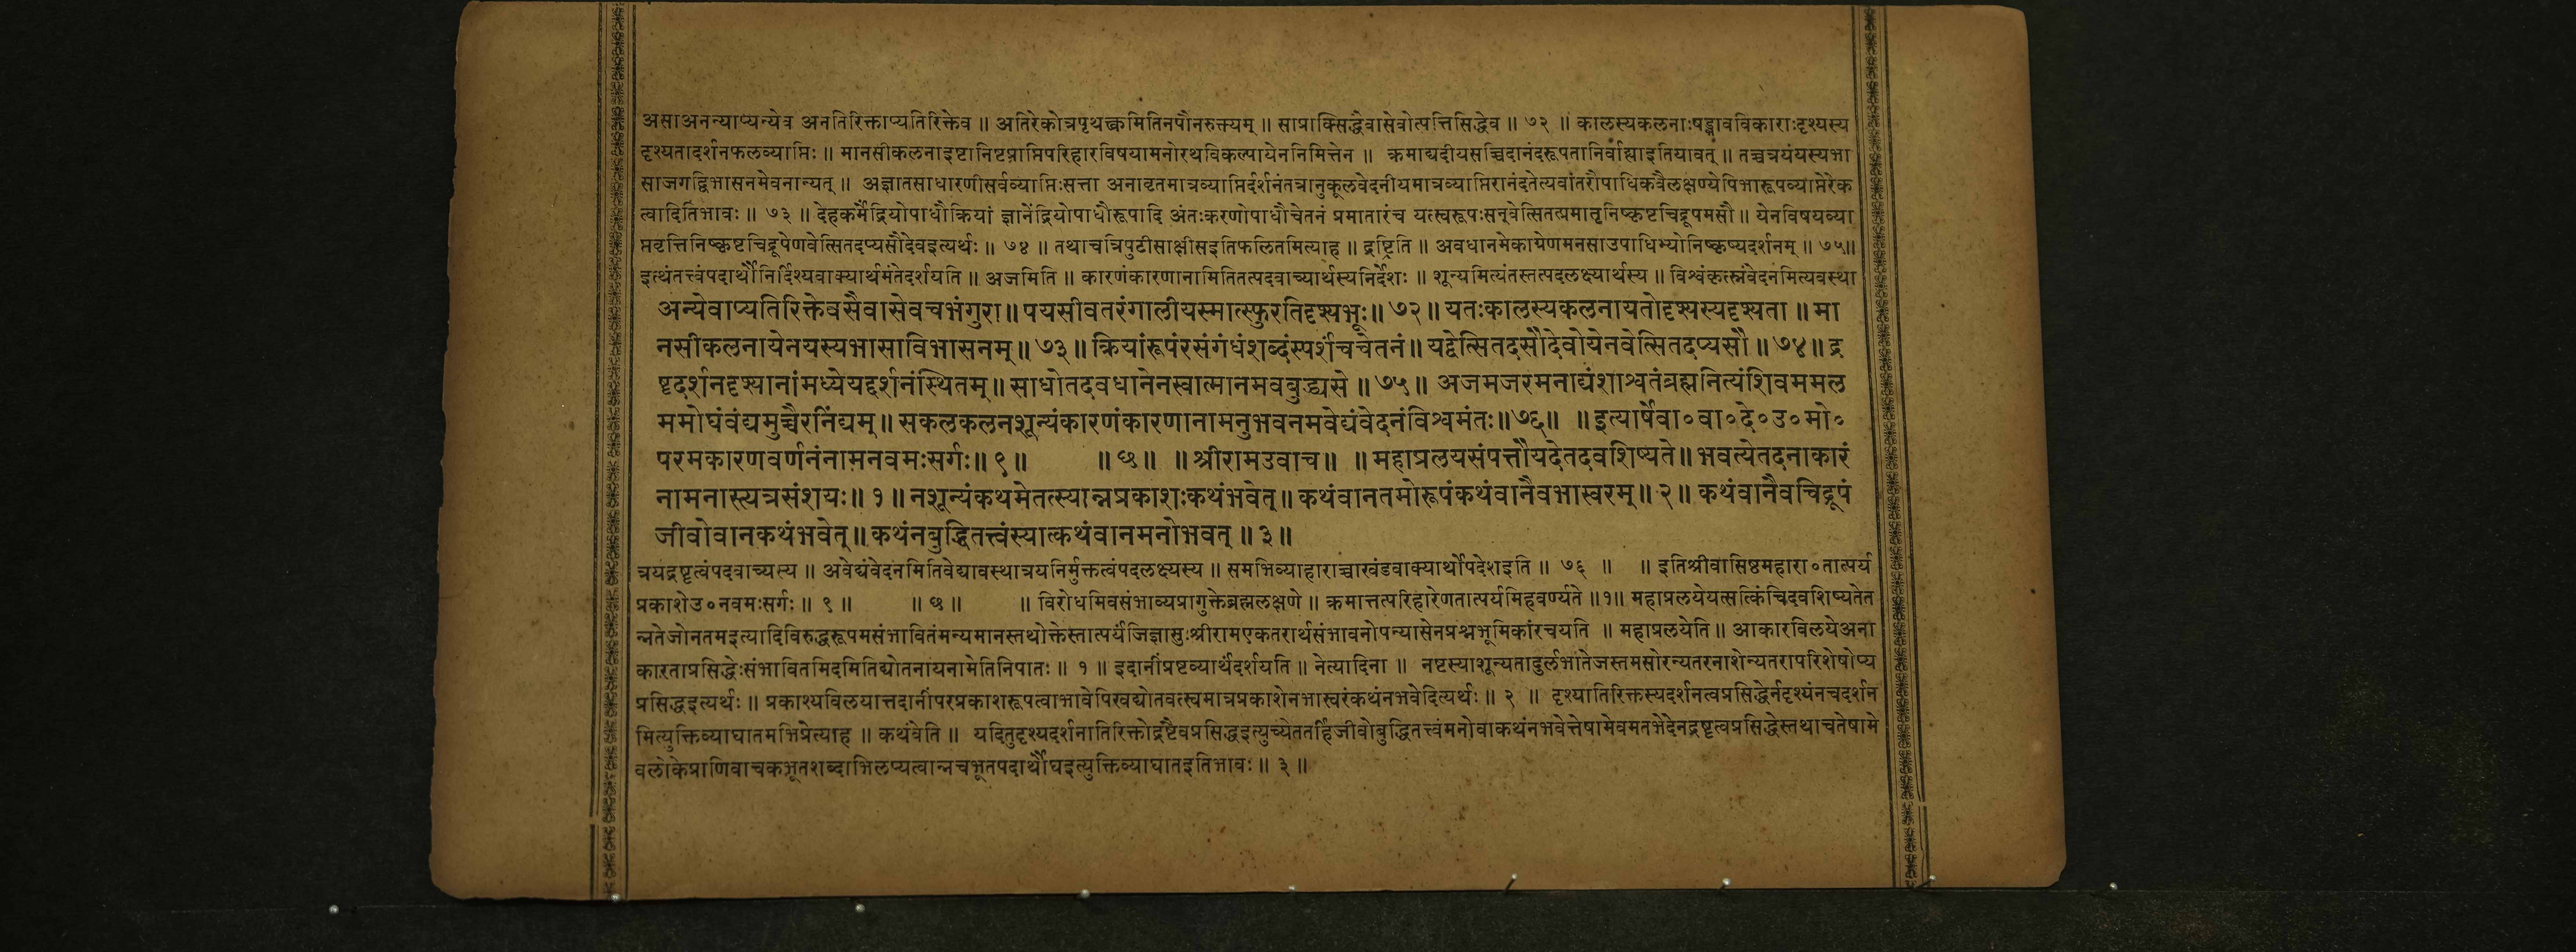 असाअनन्याप्यन्येव अनतिरिक्ताप्यतिरिक्तेव ॥ अतिरेकोत्रपृथक्त्वमितिनपौनरुक्त्यम् ॥ साप्राक्सिद्धेवासेवोत्पत्तिसिद्धेव ॥ ७२ ॥ कालस्यकलनाःषड्भावविकाराःदृश्यस्य
दृश्यतादर्शनफलव्याप्तिः ॥ मानसीकलनाइष्टानिष्टप्राप्तिपरिहारविषयामनोरथविकल्पायेननिमित्तेन ॥ क्रमाद्यदीयसच्चिदानंदरूपतानिर्वाह्याइतियावत् ॥ तच्चत्रयंयस्यभा
साजगद्विभासनमेवनान्यत् ॥ अज्ञातसाधारणीसर्वव्याप्तिःसत्ता अनावृतमात्रव्याप्तिर्दर्शनंतत्रानुकूलवेदनीयमात्रव्याप्तिरानंदतेत्यवांतरौपाधिकवैलक्षण्येपिभारूपव्याप्तेरेक
त्वादितिभावः ॥ ७३ ॥ देहकर्मेंद्रियोपाधौक्रियां ज्ञानेंद्रियोपाधौरूपादि अंतःकरणोपाधौचेतनं प्रमातारंच यत्स्वरूपःसन्वेत्सितत्प्रमातृनिष्कृष्टचिद्रूपमसौ ॥ येनविषयव्या
प्तवृत्तिनिष्कृष्टचिद्रूपेणवेत्सितदप्यसौदेवइत्यर्थः ॥ ७४ ॥ तथाचत्रिपुटीसाक्षीसइतिफलितमित्याह ॥ द्रष्ट्रिति ॥ अवधानमेकाग्रेणमनसाउपाधिभ्योनिष्कृष्यदर्शनम् ॥ ७५॥
इत्थंतत्त्वंपदार्थौनिर्दिश्यवाक्यार्थमंतेदर्शयति ॥ अजमिति ॥ कारणंकारणानामितितत्पदवाच्यार्थस्यनिर्देशः ॥ शून्यमित्यंतस्तत्पदलक्ष्यार्थस्य ॥ विश्वंकृत्स्नंवेदनमित्यवस्था
अन्येवाप्यतिरिक्तेवसैवासेवचभंगुरा॥ पयसीवतरंगालीयस्मात्स्फुरतिदृश्यभूः॥ ७२॥ यतःकालस्यकलनायतोदृश्यस्यदृश्यता ॥ मा
नसीकलनायेनयस्यभासाविभासनम्॥ ७३॥ क्रियांरूपंरसंगंधंशब्दंस्पर्शंचचेतनं॥ यद्वेत्सितदसौदेवोयेनवेत्सितदप्यसौ॥ ७४॥ द्र
ष्टृदर्शनदृश्यानांमध्येयद्दर्शनंस्थितम्॥ साधोतदवधानेनस्वात्मानमवबुद्ध्यसे ॥ ७५॥ अजमजरमनाद्यंशाश्वतंब्रह्मनित्यंशिवममल
ममोघंवंद्यमुच्चैरनिंद्यम्॥ सकलकलनशून्यंकारणंकारणानामनुभवनमवेद्यंवेदनंविश्वमंतः॥७६॥ ॥ इत्यार्षेवा०वा०दे०उ०मो०
परमकारणवर्णनंनामनवमःसर्गः॥ ९॥ ॥ छ॥ ॥ श्रीरामउवाच॥ ॥ महाप्रलयसंपत्तौयदेतदवशिष्यते॥ भवत्येतदनाकारं
नामनास्त्यत्रसंशयः॥ १॥ नशून्यंकथमेतत्स्यान्नप्रकाशःकथंभवेत्॥ कथंवानतमोरूपंकथंवानैवभास्वरम्॥ २॥ कथंवानैवचिद्रूपं
जीवोवानकथंभवेत्॥ कथंनबुद्धितत्त्वंस्यात्कथंवानमनोभवत् ॥ ३॥
त्रयद्रष्टृत्वंपदवाच्यस्य ॥ अवेद्यंवेदनमितिवेद्यावस्थात्रयनिर्मुक्तत्वंपदलक्ष्यस्य ॥ समभिव्याहाराच्चाखंडवाक्यार्थोपदेशइति ॥ ७६ ॥ ॥ इतिश्रीवासिष्ठमहारा०तात्पर्य
प्रकाशेउ०नवमःसर्गः ॥ ९ ॥ ॥ छ ॥ ॥ विरोधमिवसंभाव्यप्रागुक्तेब्रह्मलक्षणे ॥ क्रमात्तत्परिहारेणतात्पर्यमिहवर्ण्यते ॥१॥ महाप्रलयेयत्सत्किंचिदवशिष्यतेत
न्नतेजोनतमइत्यादिविरुद्धरूपमसंभावितंमन्यमानस्तथोक्तेस्तात्पर्यंजिज्ञासुःश्रीरामएकतरार्थसंभावनोपन्यासेनप्रश्नभूमिकांरचयति ॥ महाप्रलयेति ॥ आकारविलयेअना
कारताप्रसिद्धेःसंभावितमिदमितिद्योतनायनामेतिनिपातः ॥ १ ॥ इदानींप्रष्टव्यार्थंदर्शयति ॥ नेत्यादिना ॥ नष्टस्याशून्यतादुर्लभातेजस्तमसोरन्यतरनाशेन्यतरापरिशेषोप्य
प्रसिद्धइत्यर्थः ॥ प्रकाश्यविलयात्तदानींपरप्रकाशरूपत्वाभावेपिखद्योतवत्स्वमात्रप्रकाशेनभास्वरंकथंनभवेदित्यर्थः ॥ २ ॥ दृश्यातिरिक्तस्यदर्शनत्वप्रसिद्धेर्नदृश्यंनचदर्शन
मित्युक्तिव्याघातमभिप्रेत्याह ॥ कथंवेति ॥ यदितुदृश्यदर्शनातिरिक्तोद्रष्टैवप्रसिद्धइत्युच्येततर्हिजीवोबुद्धितत्त्वंमनोवाकथंनभवेत्तेषामेवमतभेदेनद्रष्टृत्वप्रसिद्धेस्तथाचतेषामे
वलोकेप्राणिवाचकभूतशब्दाभिलप्यत्वान्नचभूतपदार्थौघइत्युक्तिव्याघातइतिभावः ॥ ३ ॥